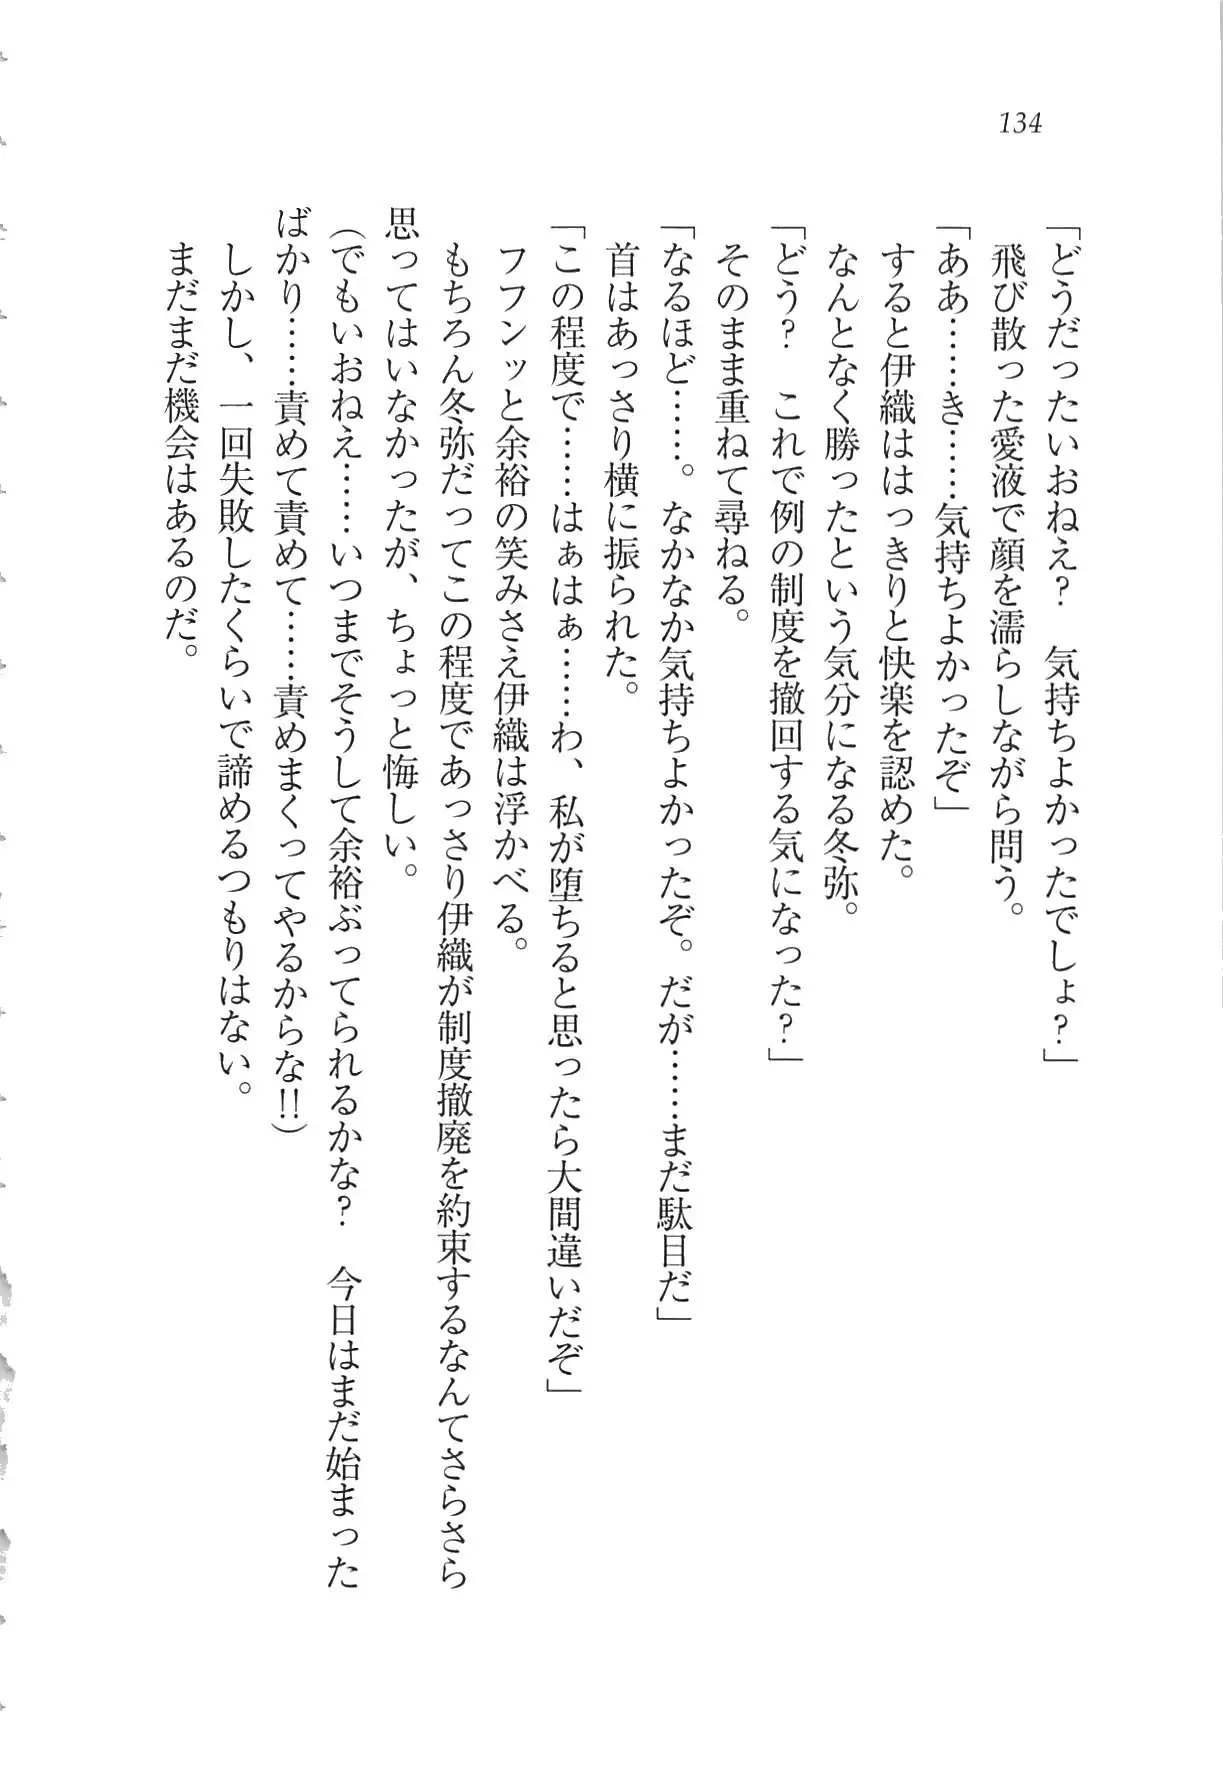 134
「どうだったいおねえ?　気持ちよかったでしょ?」
飛び散った愛液で顔を濡らしながら問う。
「ああ……き……気持ちよかったぞ」
すると伊織ははっきりと快楽を認めた。
なんとなく勝ったという気分になる冬弥。
「どう?　これで例の制度を撤回する気になった?」
そのまま重ねて尋ねる。
「なるほど……。なかなか気持ちよかったぞ。だが……まだ駄目だ」
首はあっさり横に振られた。
「この程度で……はぁはぁ……わ、私が堕ちると思ったら大間違いだぞ」
フフンッと余裕の笑みさえ伊織は浮かべる。
もちろん冬弥だってこの程度であっさり伊織が制度撤廃を約束するなんてさらさら
思ってはいなかったが、ちょっと悔しい。
(でもいおねえ……いつまでそうして余裕ぶってられるかな?　今日はまだ始まった
ばかり……責めて責めて……責めまくってやるからな!!)
しかし、一回失敗したくらいで諦めるつもりはない。
まだまだ機会はあるのだ。